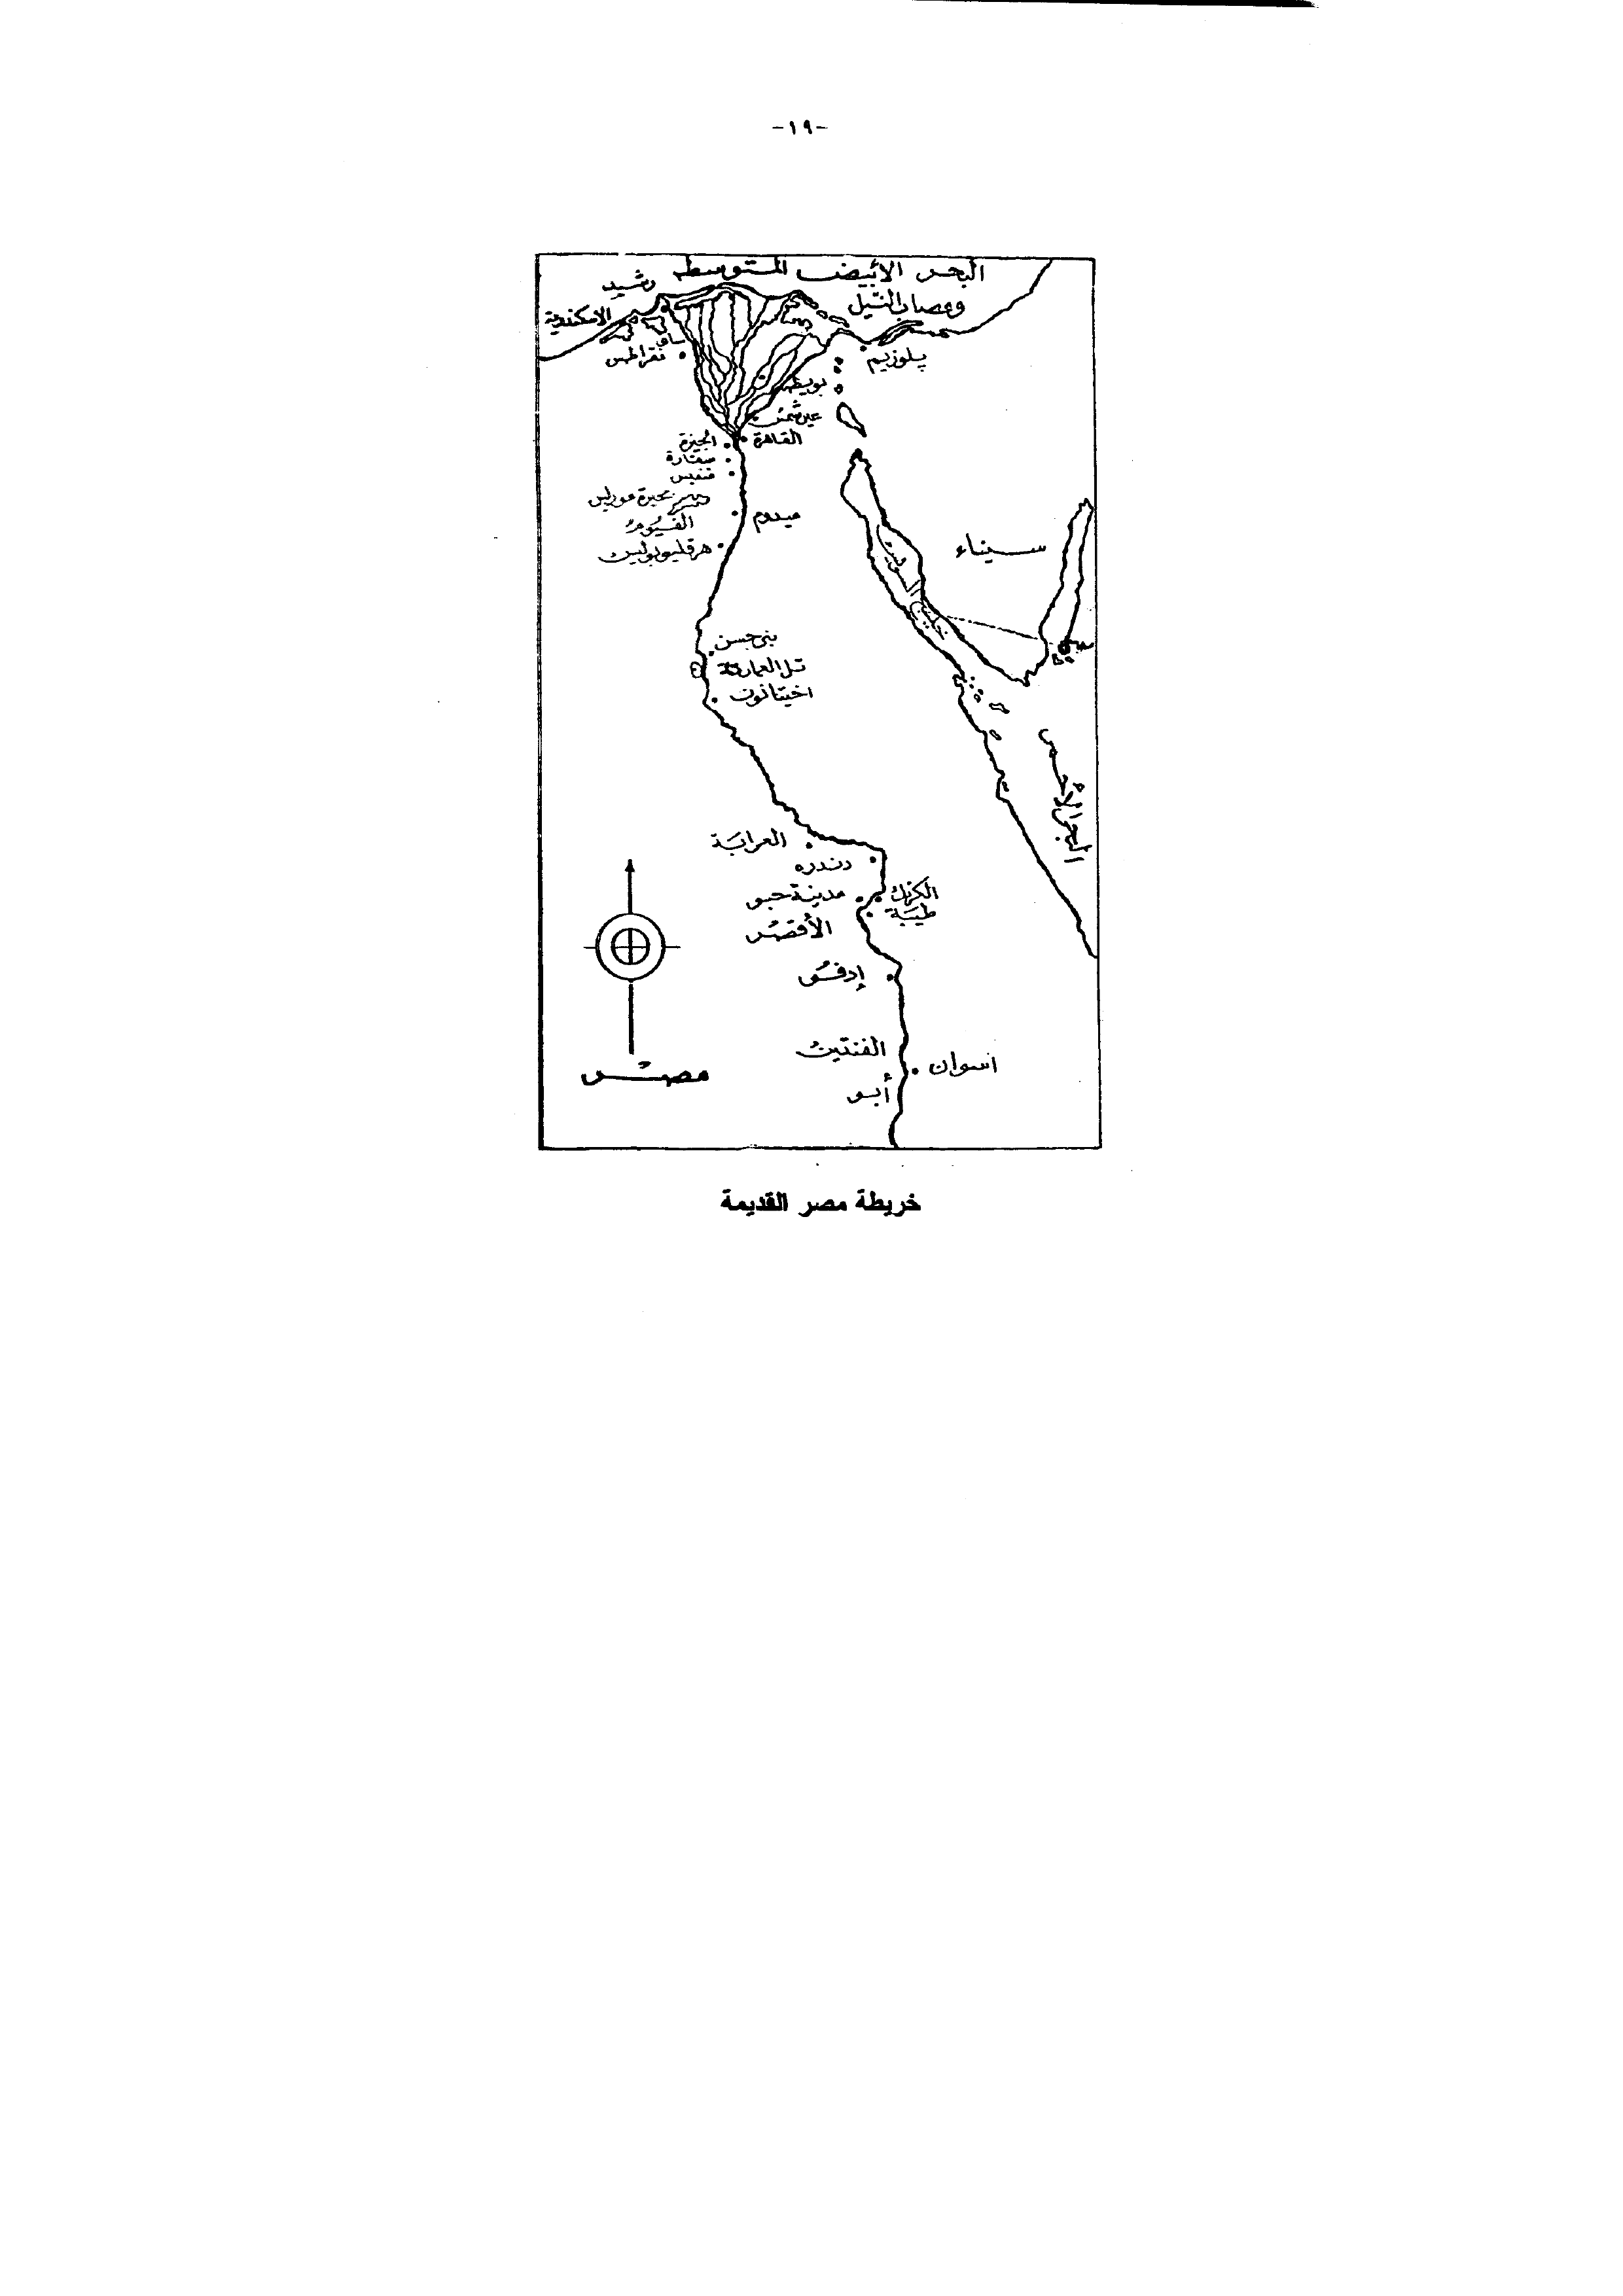 -١٩-
البحر الأبيض المتوسط
رشيد
ومصاب النيل
الاسكندرية
نقراطس
پلوزيم
عين شمس
القاهرة
الجيزة
سقارة
منفيس
بحيرة موريس
ميدوم
الفيوم
هرقليوبوليس
سيناء
بنى حسن
تل العمارنة
اخيتاتون
البحر الأحمر
العرابة
دندره
مدينة حبو
الكرنك
طيبة
الأقصر
إدفو
الفنتين
اسوان
أبو
مصر
خريطة مصر القديمة